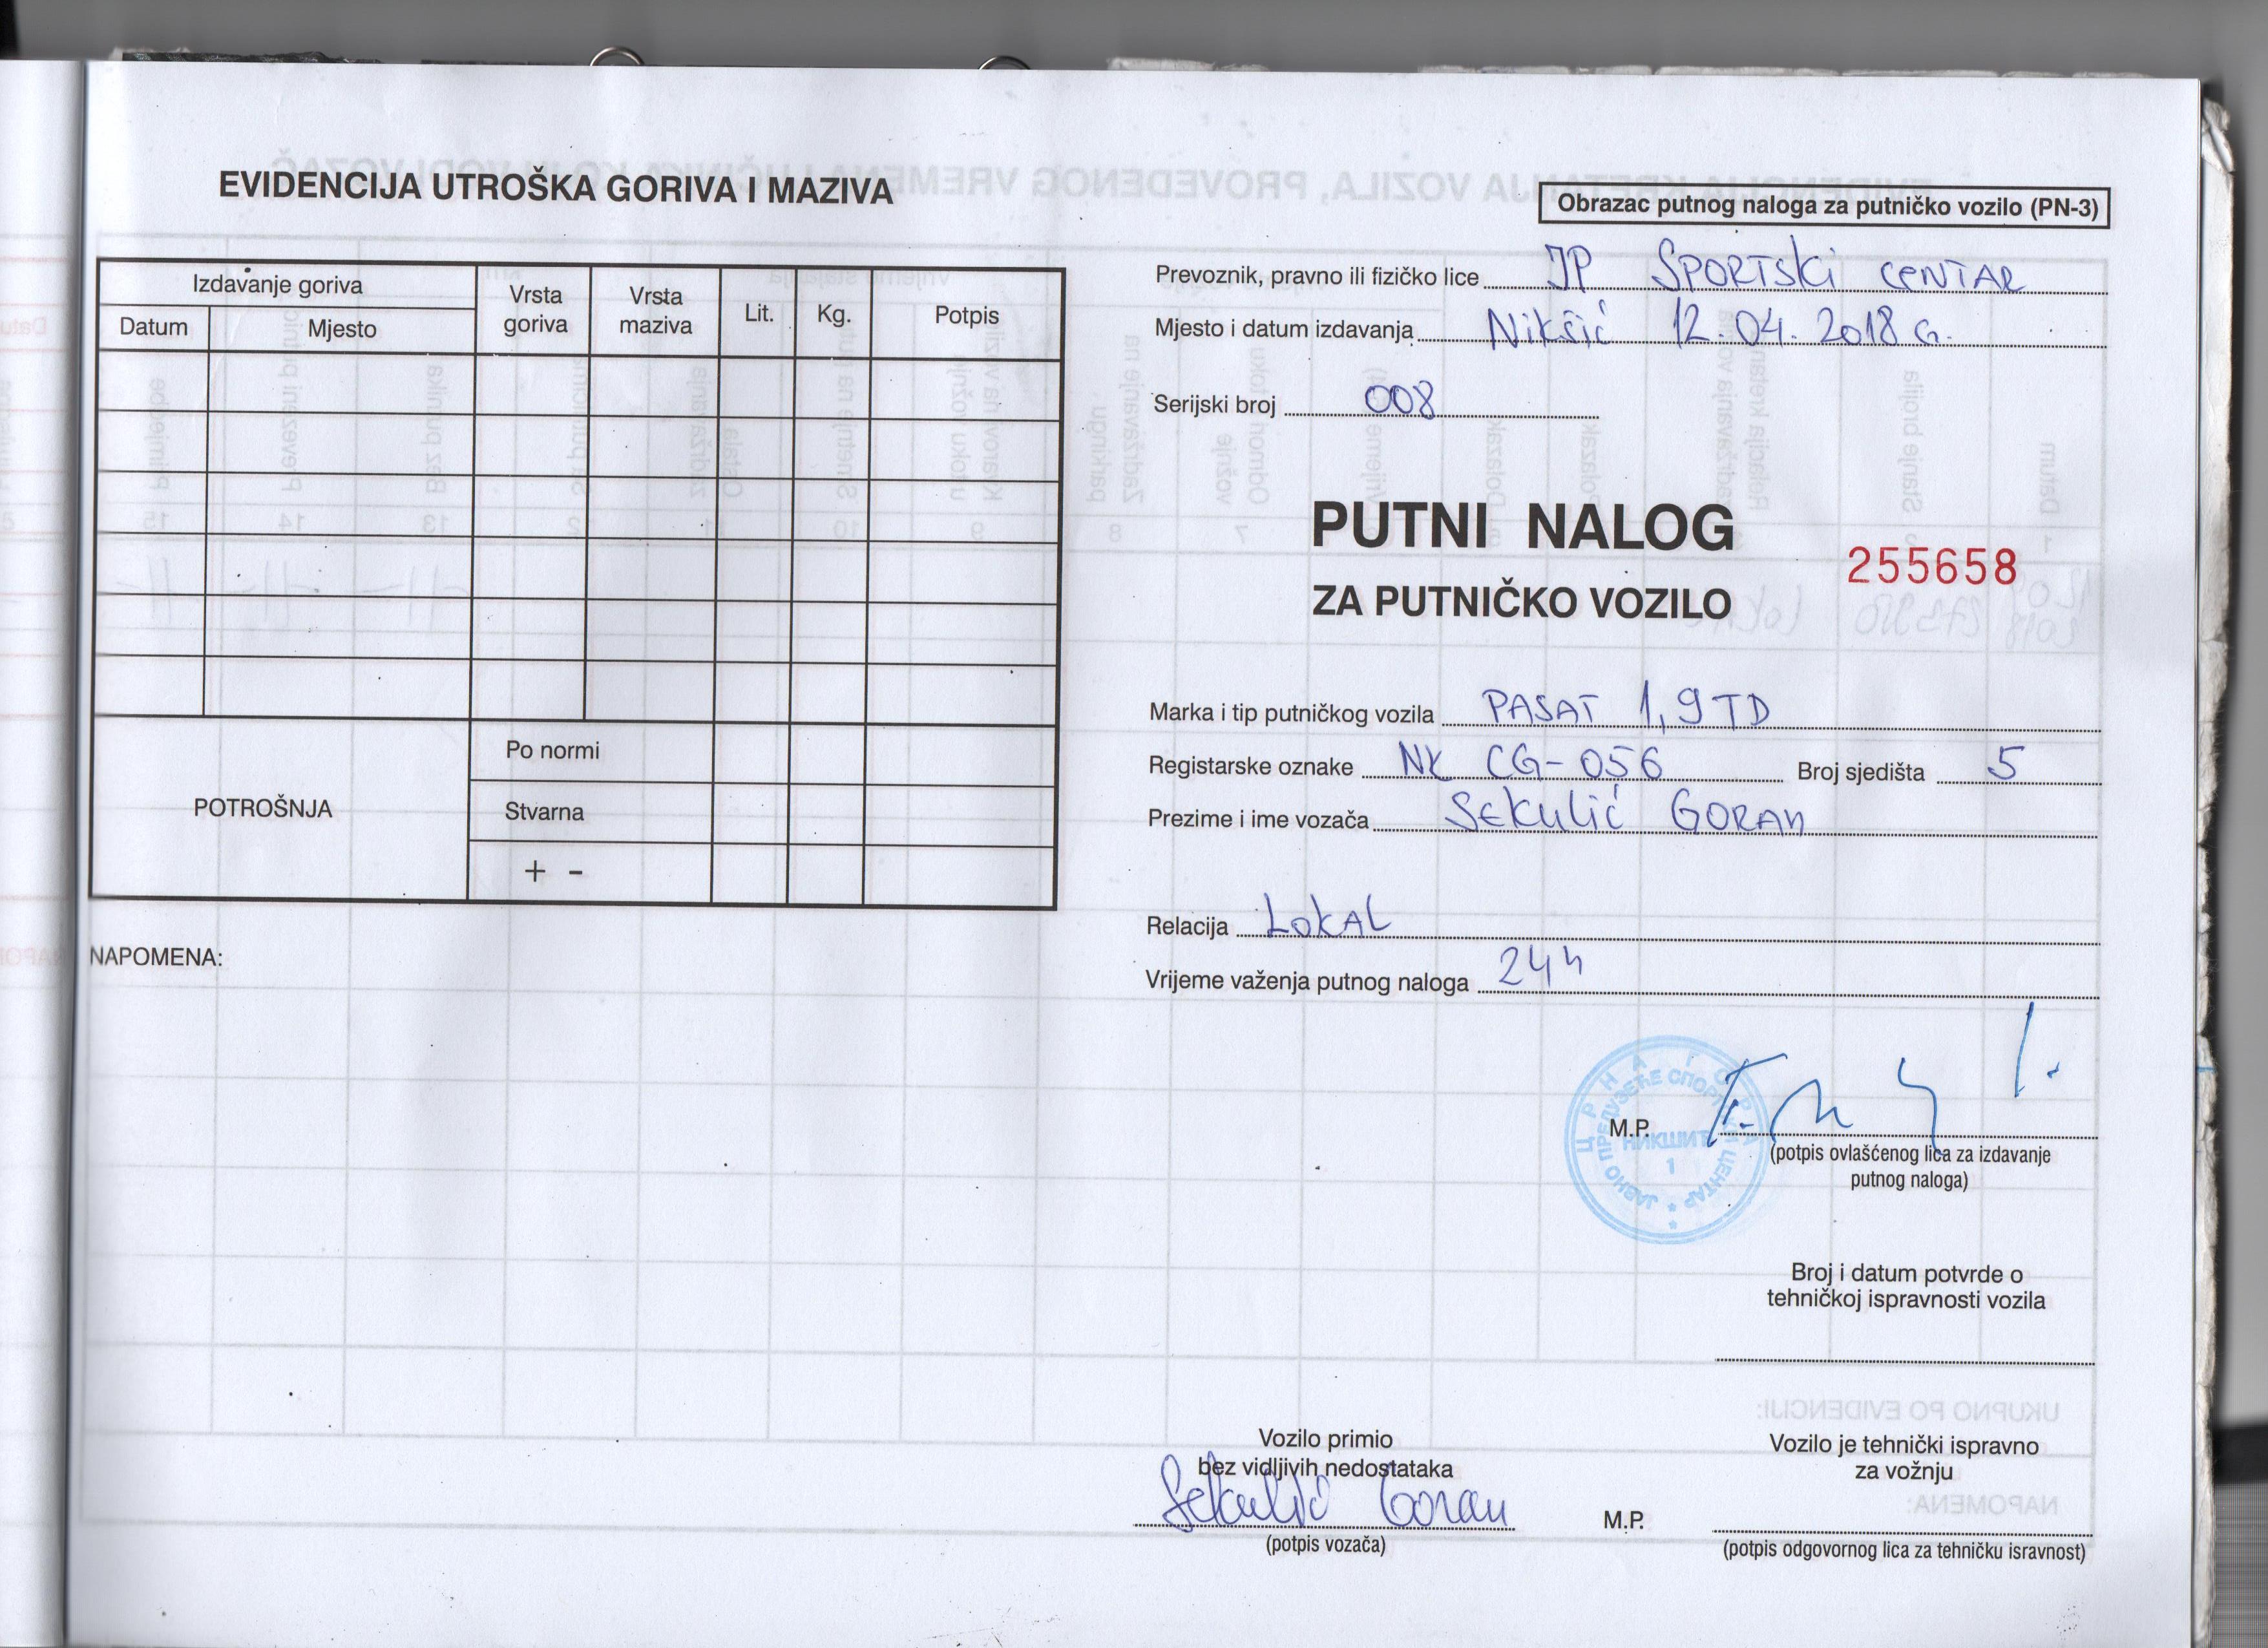 EVIDENCIJA UTROŠKA GORIVA I MAZIVA
Izdavanje goriva
Datum
Mjesto
Vrsta
goriva
Vrsta
maziva
Lit.
Kg.
Potpis
POTROŠNJA
Po normi
Stvarna
+ -
NAPOMENA:
Obrazac putnog naloga za putničko vozilo (PN-3)
Prevoznik, pravno ili fizičko lice JP SPORTSKI CENTAR
Mjesto i datum izdavanja Nikšić 12.04.2018 G.
Serijski broj 008
PUTNI NALOG
255658
ZA PUTNIČKO VOZILO
Marka i tip putničkog vozila PASAT 1,9 TD
Registarske oznake NK CG-056 Broj sjedišta 5
Prezime i ime vozača SEKULIĆ GORAN
Relacija LOKAL
Vrijeme važenja putnog naloga 24h
ЦРНА ГОРА
ЈАВНО ПРЕДУЗЕЋЕ СПОРТСКИ ЦЕНТАР
НИКШИЋ
1
M.P.
(potpis ovlašćenog lica za izdavanje
putnog naloga)
Broj i datum potvrde o
tehničkoj ispravnosti vozila
Vozilo primio
bez vidljivih nedostataka
Sekulić Goran
(potpis vozača)
Vozilo je tehnički ispravno
za vožnju
M.P.
(potpis odgovornog lica za tehničku isravnost)